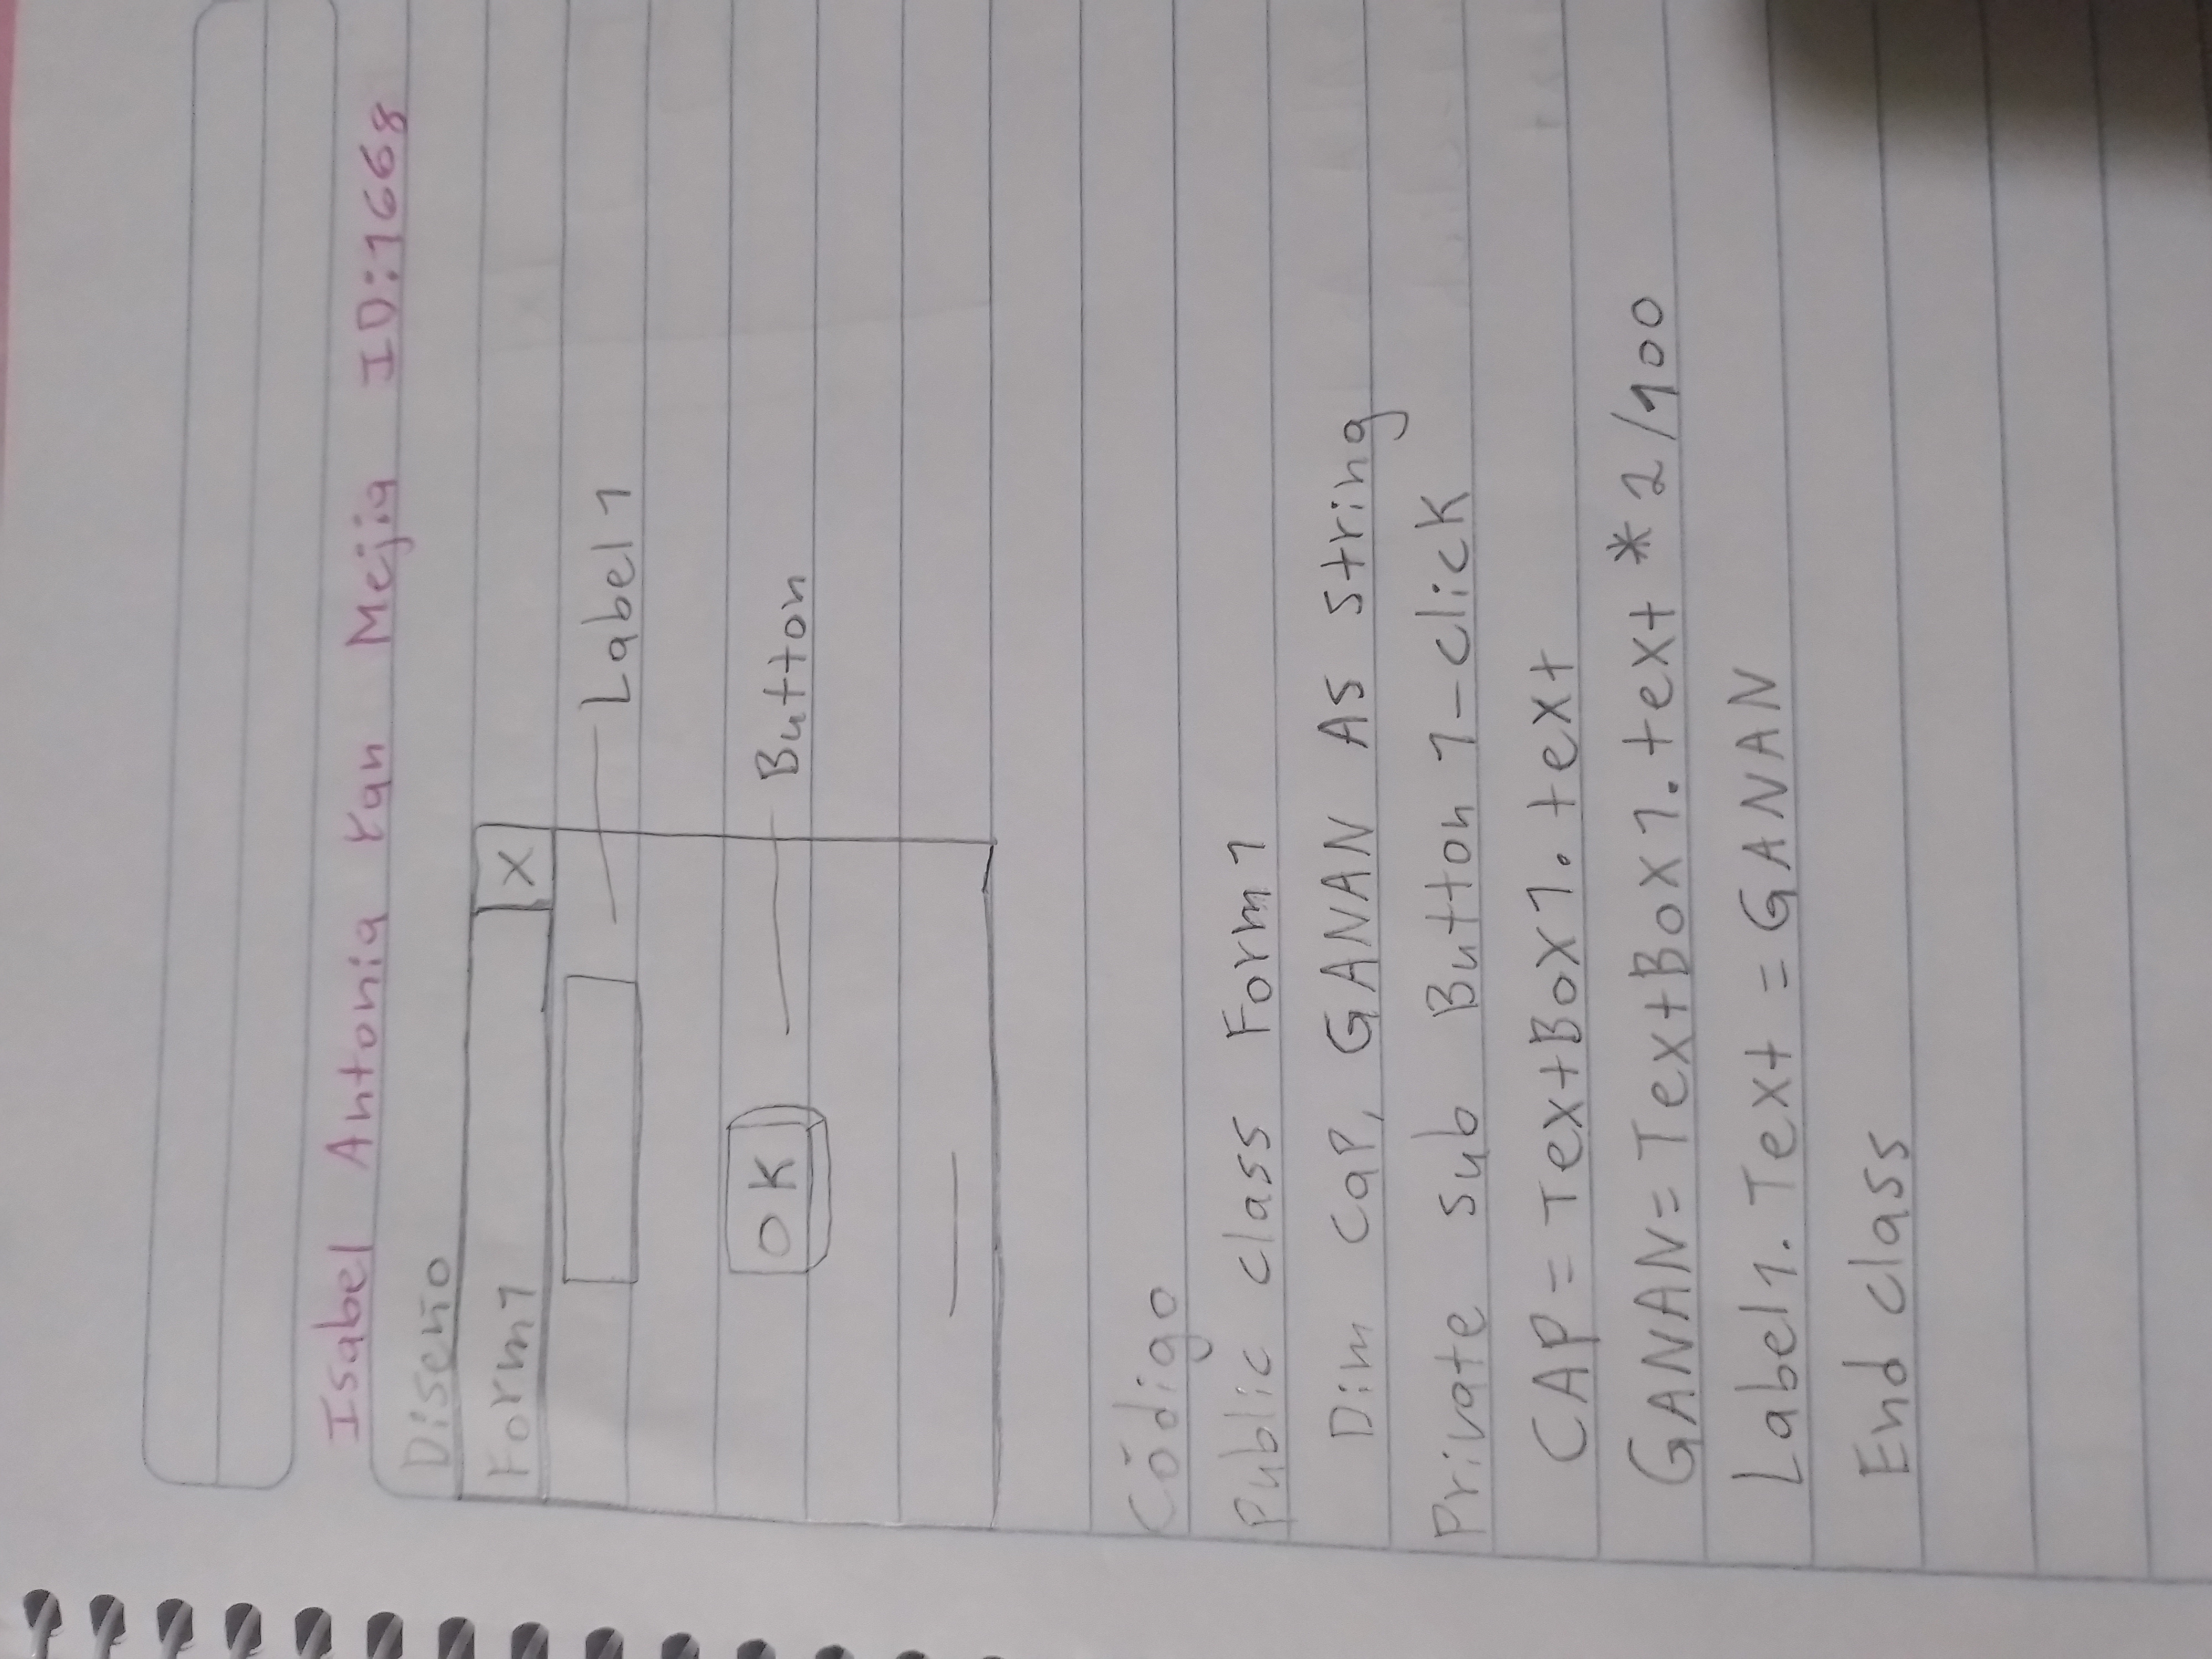 Isabel Antonia Yan Mejia ID:1668
Diseño
Form1 X
Label 1
OK Button
Código
Public class Form 1
Dim CaP, GANAN AS String
Private sub Button 1-click
CAP = TextBox1.text
GANAN= TextBox1.text * 2/100
Label1.Text = GANAN
End class